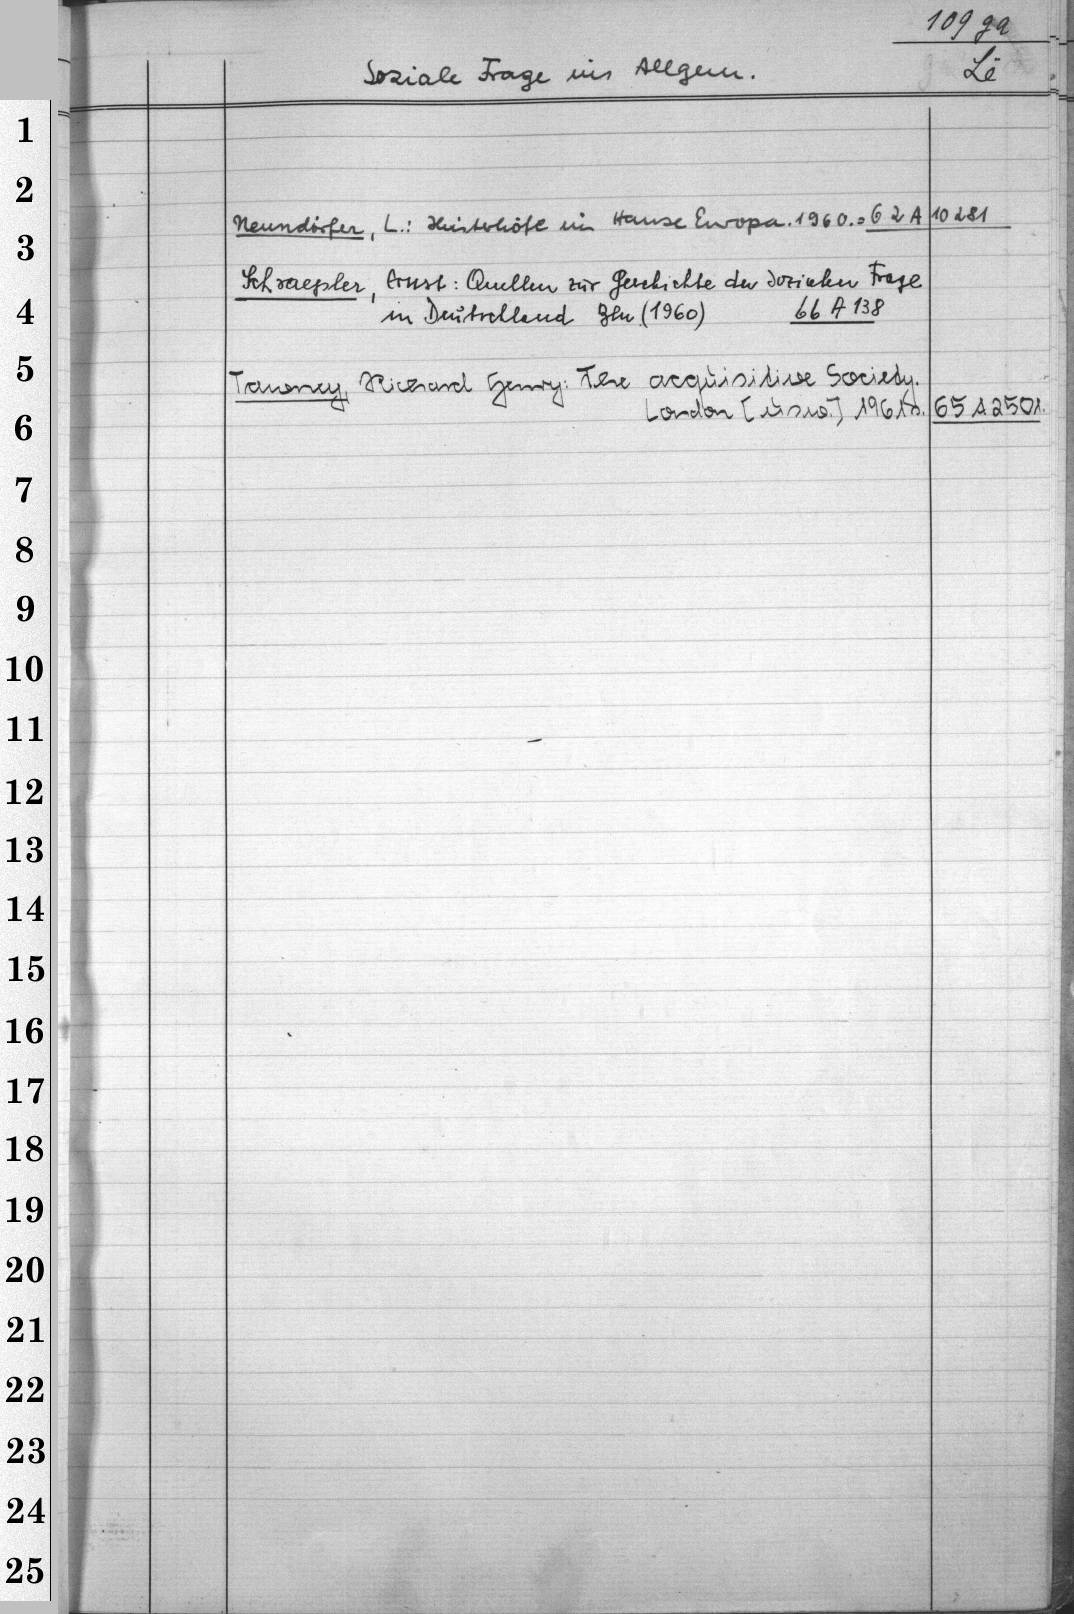 109 ga
Soziale Frage im Allgem.
Lë
Neundörfer, L.: Hinterhöfe im Hause Europa. 1960. = 62 A 10281
Schraepler, Ernst: Quellen zur Geschichte der sozialen Frage
in Deutschland Bln. (1960) 66 A 138
Tawney, Richard Henry: The acquisitive Society.
London [usw.] 1961. 65 A 2501.
1
2
3
4
5
6
7
8
9
10
11
12
13
14
15
16
17
18
19
20
21
22
23
24
25